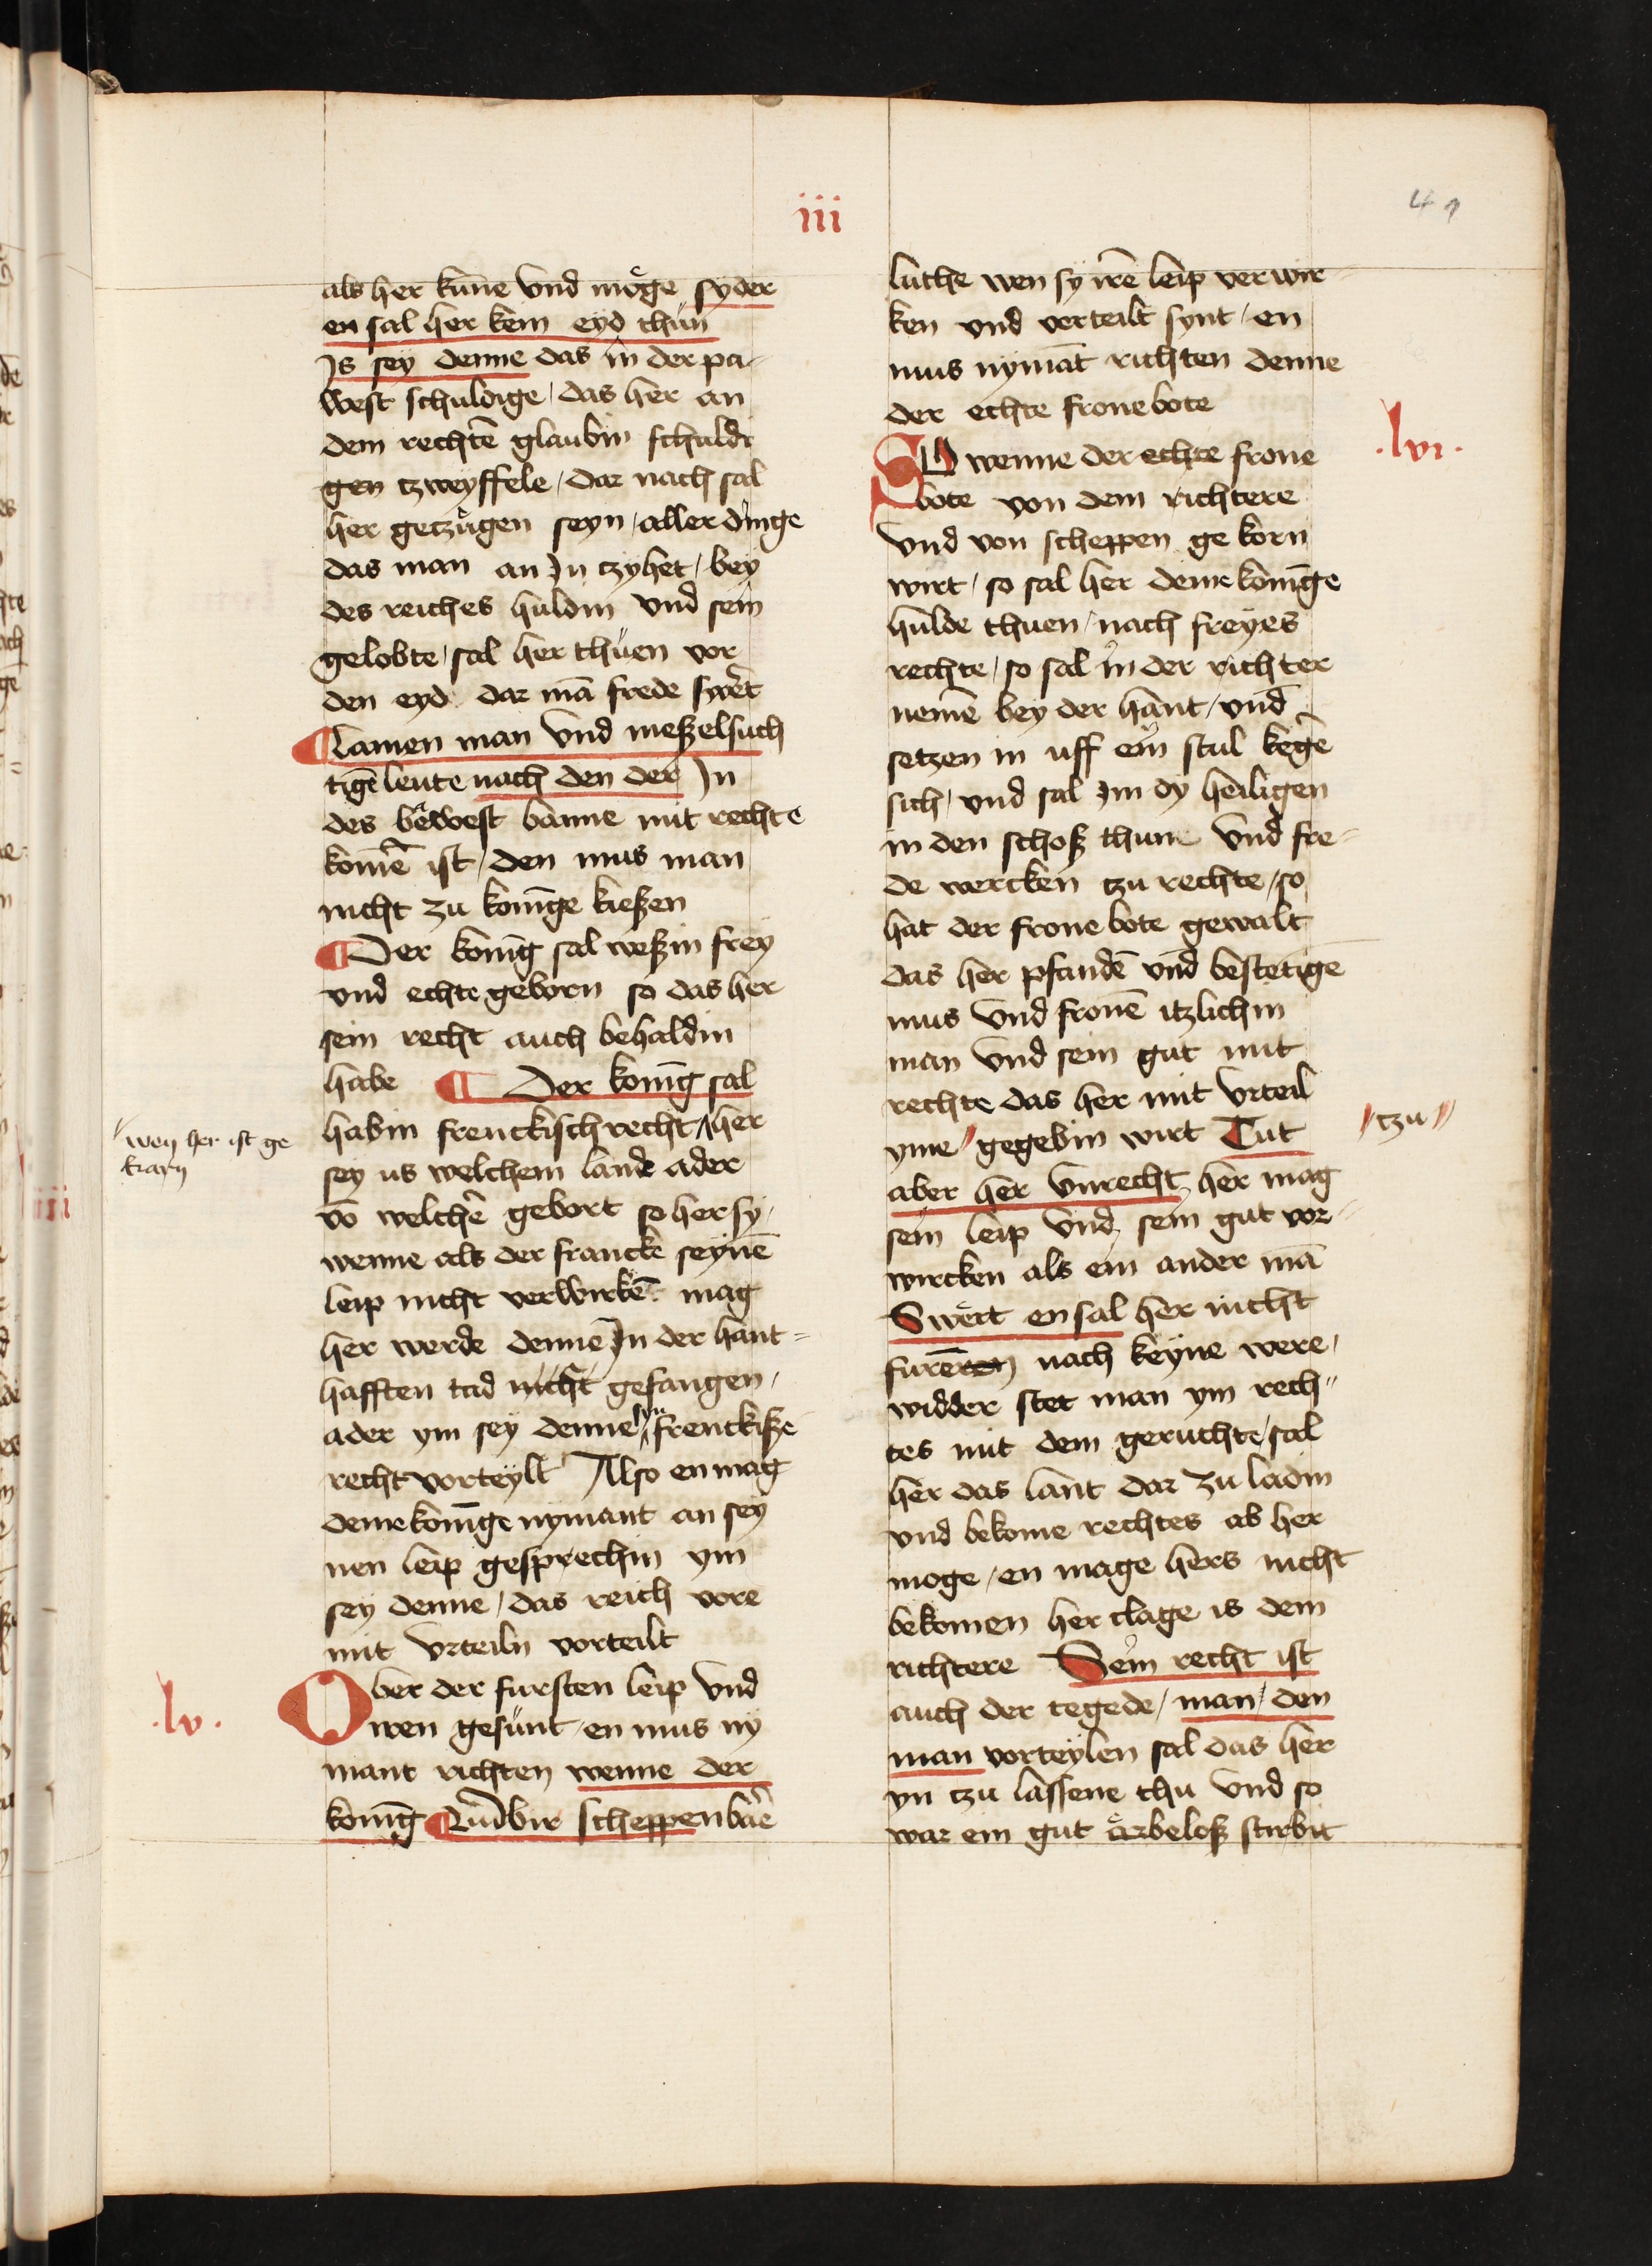 iii
49
als her kun̄e vnd moͤge syder
en sal her kein eyd thün
Js sey denne das in der pa-
west schuldige / das her an
dem rechtē glaubin schuldi
gen tzweyffele / dar nach sal
her getzuͤgen seyn / aller dinge
das man an Jn tzyhet / bey
des reiches huldin vnd sein
gelobte / sal her thüen vor
den eyd dar mā frede swert
¶ Lamen man vnd meßelsuch
tigē leute nach den der Jn
des bewest banne mit rechte
komē ist / den mus man
nicht zu konīge kießen
¶ Der konīg sal weßin frey
vnd echte geborn so das her
sein recht auch behaldin
habe ¶ Der konīg sal
habin frenckisch recht / her
wen her ist ge
karn
sey us welchem lande ader
vō welchē gebort so her sy /
wenne als der francke seynē
leip nicht verwirkē mag
her werde denne Jn der hant=
hafften tad nicht gefangen /
ader ym sey denne syn frenckiße
recht vorteylt Also en mag
deme konīge nymant an sey
nen leip gesprechin ym
sey denne / das reich vore
mit vrteiln vorteilt
.lv.
Ober der fursten leip vnd
wen gesunt / en mus ny
mant richten wenne der
konīg ¶ Vndbir scheppenbāe
luthe wen sy irē leip verwir-
ken vnd verteilt synt / en
mus nymāt richten denne
der echte frone bote
.lvi.
SO wenne der echte frone
bote von dem richtere
vnd von scheppen ge korn
wirt / so sal her deme konīge
hulde thuen / nach freyes
rechte / so sal in der richter
nemē bey der hant / vnd
setzen in uff ein stul kegē
sich / vnd sal Jm dy heiligen
in den schoß thun vnd fre-
de wercken tzu rechte / so
hat der frone bote gewalt
das her pfandē vnd bestetige
mus vnd fronē itzlichin
man vnd sein gut mit
rechte das her mit vrteil
yme // gegebin wirt Tut
// tzu //
aber her vnrecht her mag
sein leip vnd sein gut vor-
wircken als ein ander mā
Swert en sal her nicht
furēren nach keyne were /
widder stet man ym rech"
tes mit dem geruchte / sal
her das lant dar zu ladin
vnd bekome rechtes ab her
moge / en mage hers nicht
bekomen her clage is dem
richtere Sein recht ist
auch der tegede / man / den
man vorteylen sal das her
yn tzu lassene thu vnd so
war ein gut arbeloß stirbit